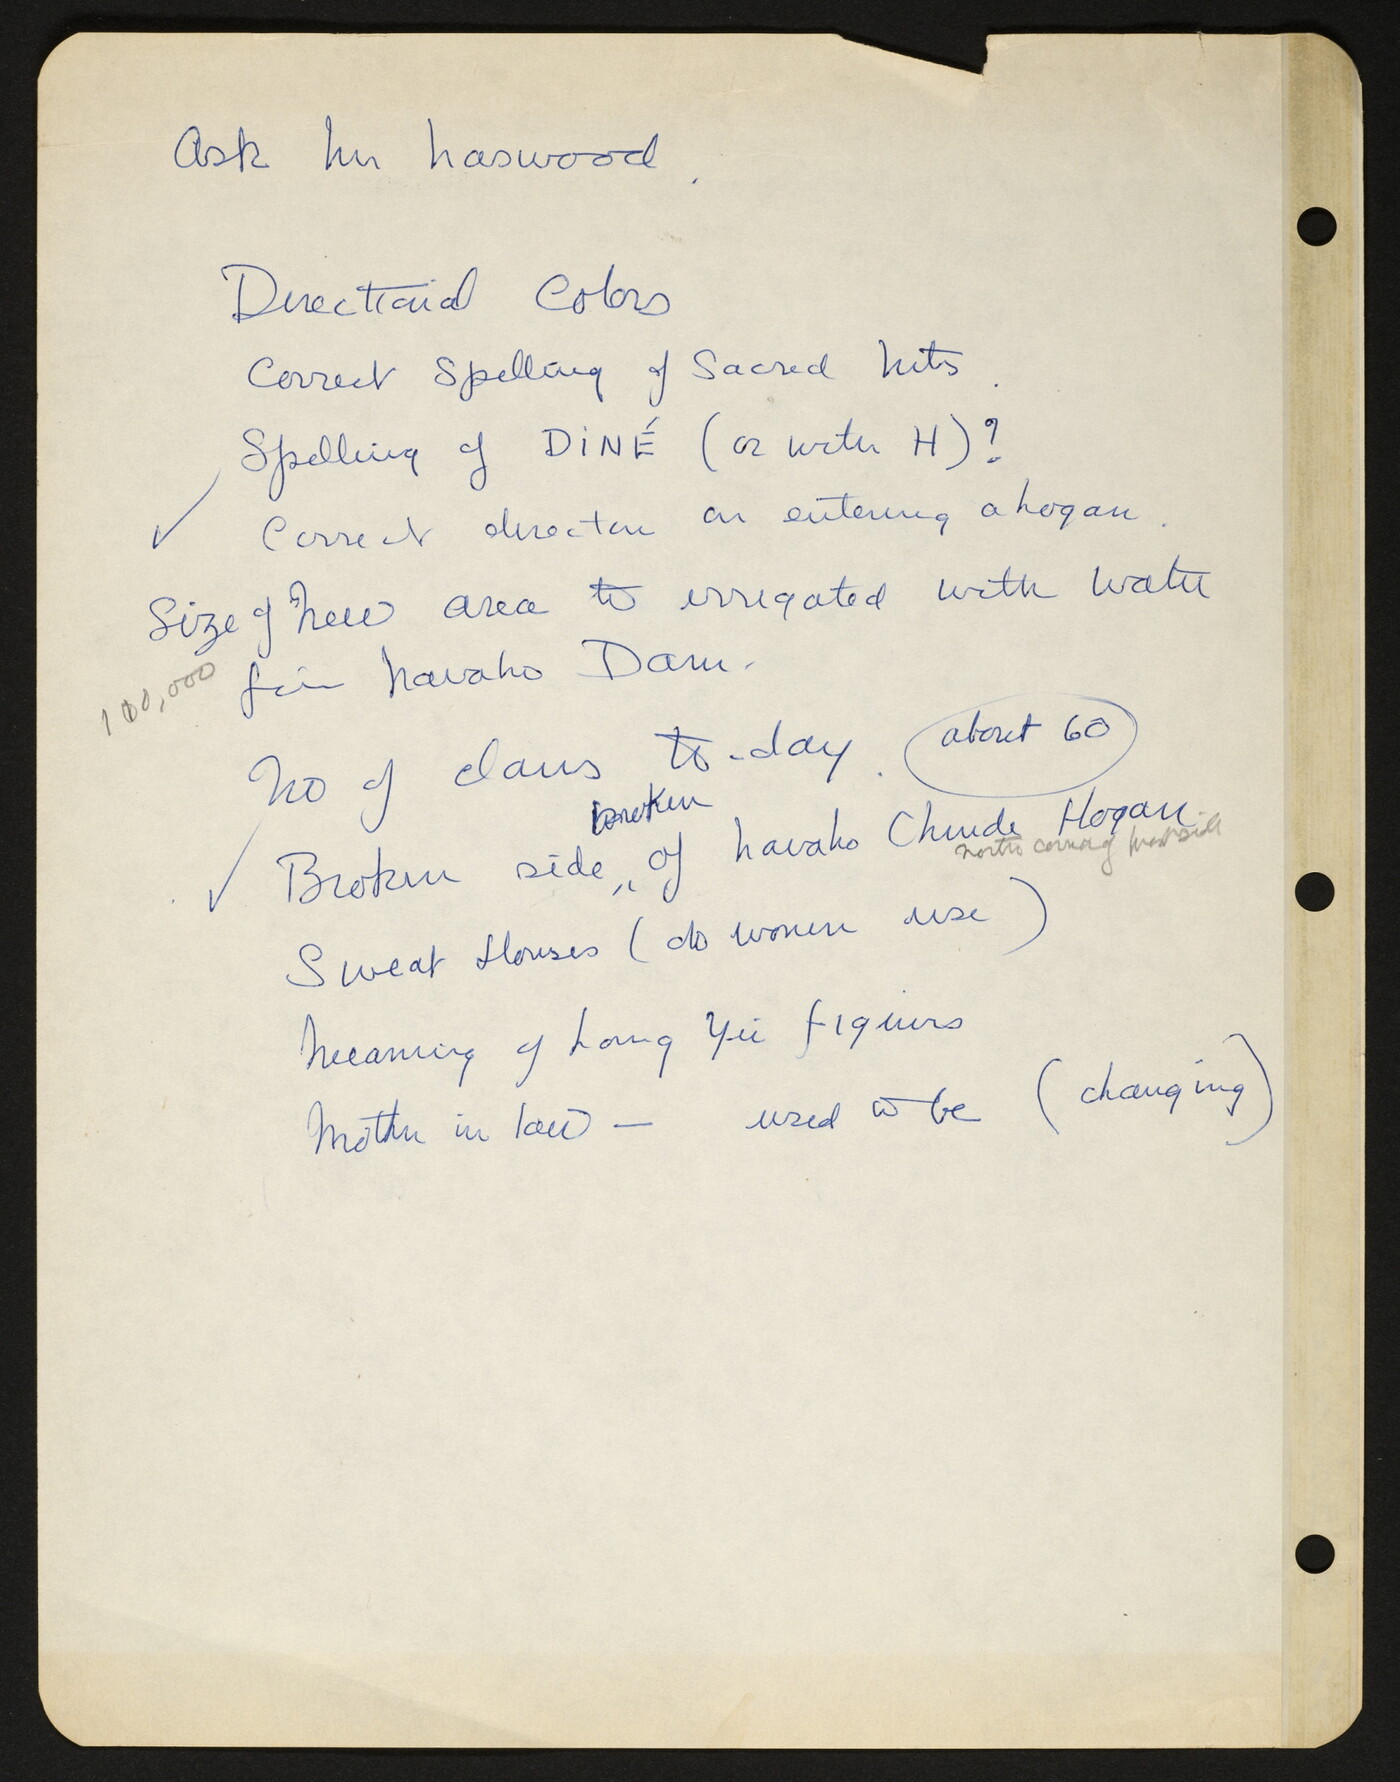 Ask Mr Haswood.
Directional Colors
Correct Spelling of Sacred Mts.
Spelling of DiNÉ (or with H)?
✓ Correct direction on entering a hogan.
Size of New area to irrigated with water
100,000 from Navaho Dam.
No of clans to-day. about 60
broken
✓ Broken side „ of Navaho Chinde Hogan
north corner of west side
Sweat Houses (do women use)
Meaning of Long Yei figures
Mother in law — used to be (changing)